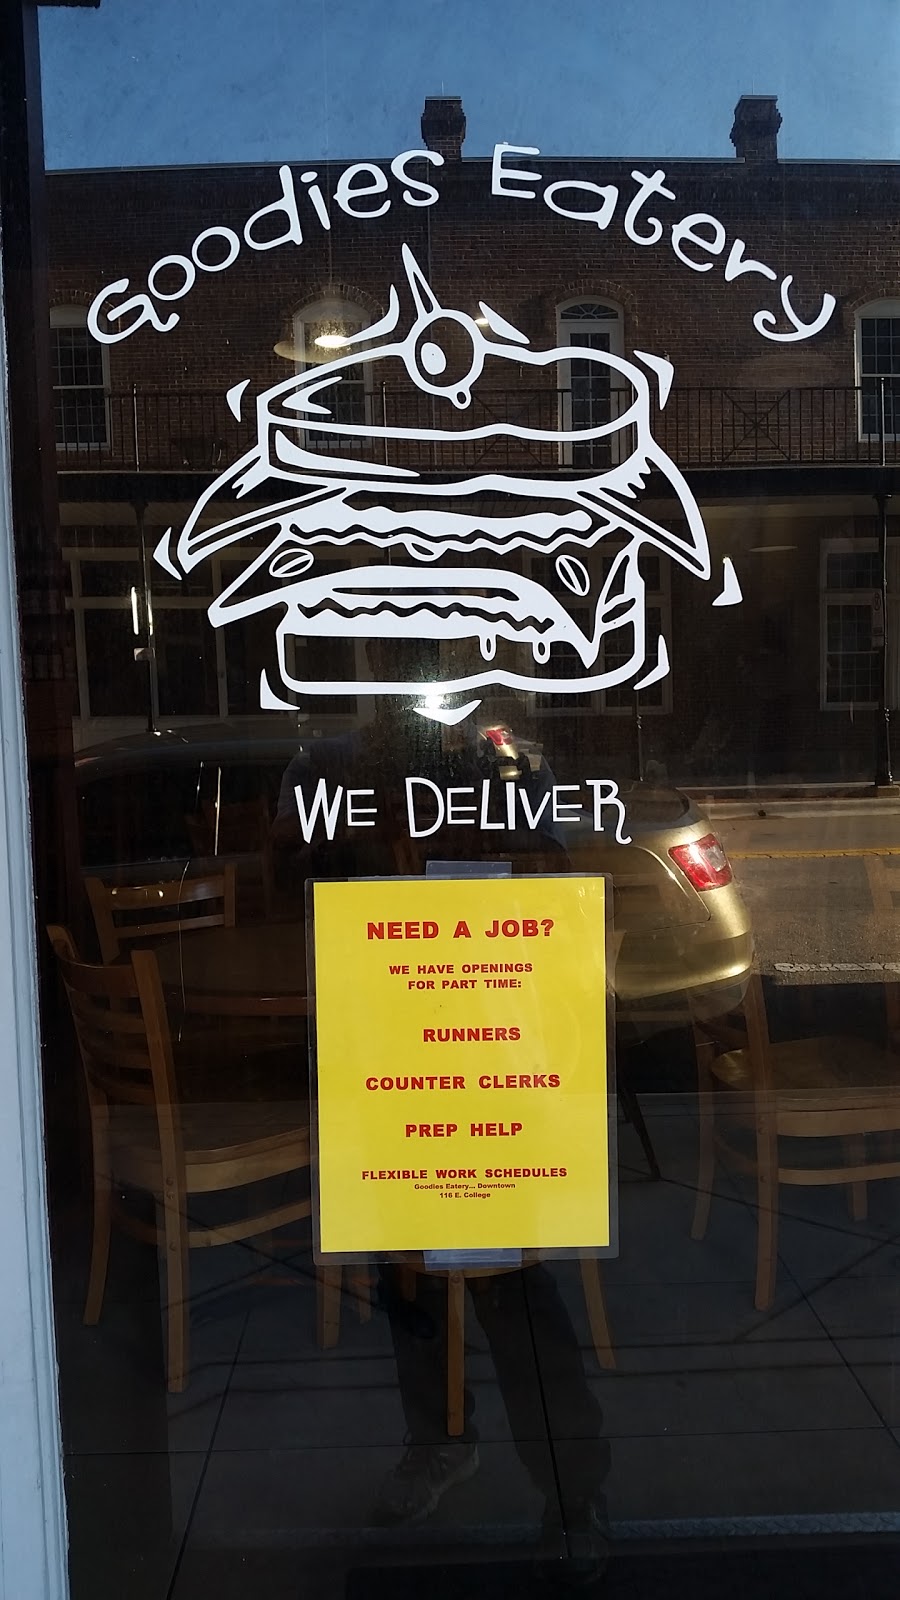 Goodies Eatery
WE DELIVER
NEED A JOB?
WE HAVE OPENINGS
FOR PART TIME:
RUNNERS
COUNTER CLERKS
PREP HELP
FLEXIBLE WORK SCHEDULES
Goodies Eatery... Downtown
116 E. College